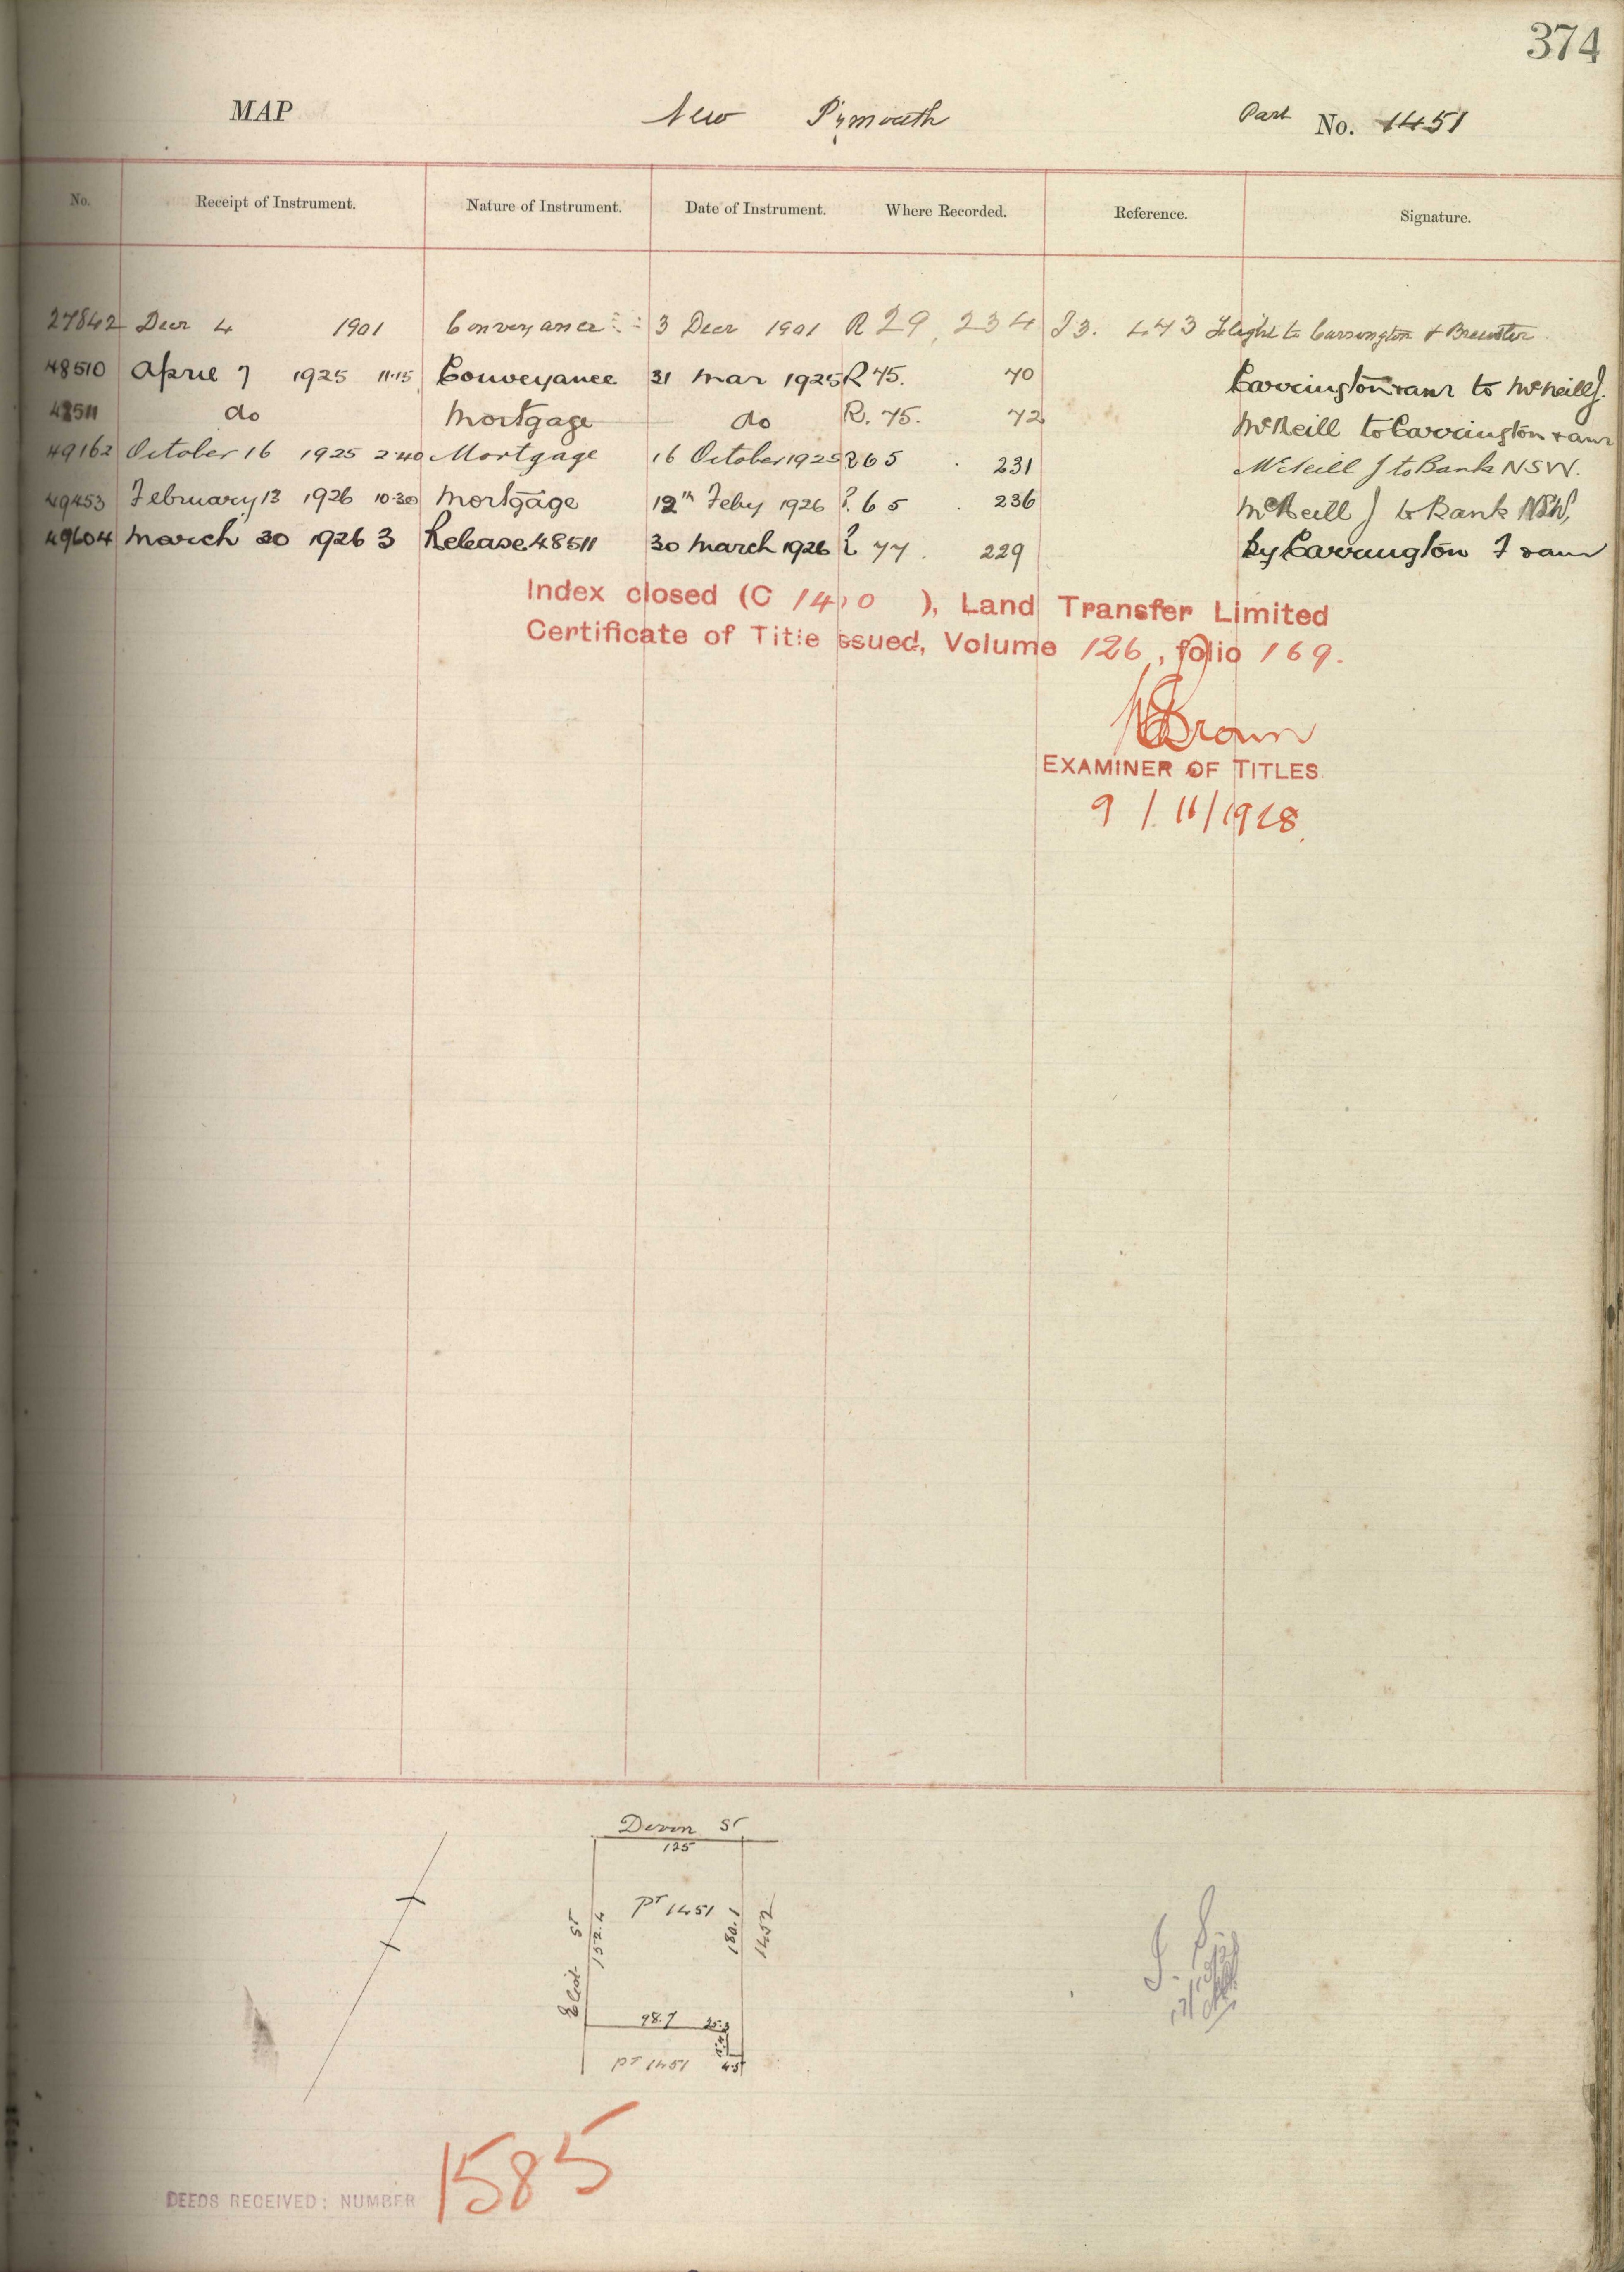 374
MAP New Plymouth Part No. 1451
No. Receipt of Instrument. Nature of Instrument. Date of Instrument. Where Recorded. Reference. Signature.
27842 Decr 4 1901 Conveyance 3 Decr 1901 R 29, 234 I3. 443 Flight to Carrington & Brewster
48510 April 7 1925 11.15 Conveyance 31 Mar 1925 R 75. 70 Carrington & anr to McNeill J.
48511 do Mortgage do R. 75. 72 McNeill to Carrington & anr
49162 October 16 1925 2.40 Mortgage 16 October 1925 R 65 231 McNeill J to Bank NSW.
49453 February 13 1926 10.30 Mortgage 12th Feby 1926 R. 65 236 McNeill J to Bank NSW.
49604 March 30 1926 3 Release 48511 30 March 1926 R 77. 229 by Carrington F & anr
Index closed (C 1410 ), Land Transfer Limited
Certificate of Title issued, Volume 126, folio 169.
Brown
EXAMINER OF TITLES.
9/11/1928.
Devon St
125
Pt 1451
Eliot St
152.4
180.1
1452
98.7 25.3
Pt 1451 45
DEEDS RECEIVED: NUMBER 1585